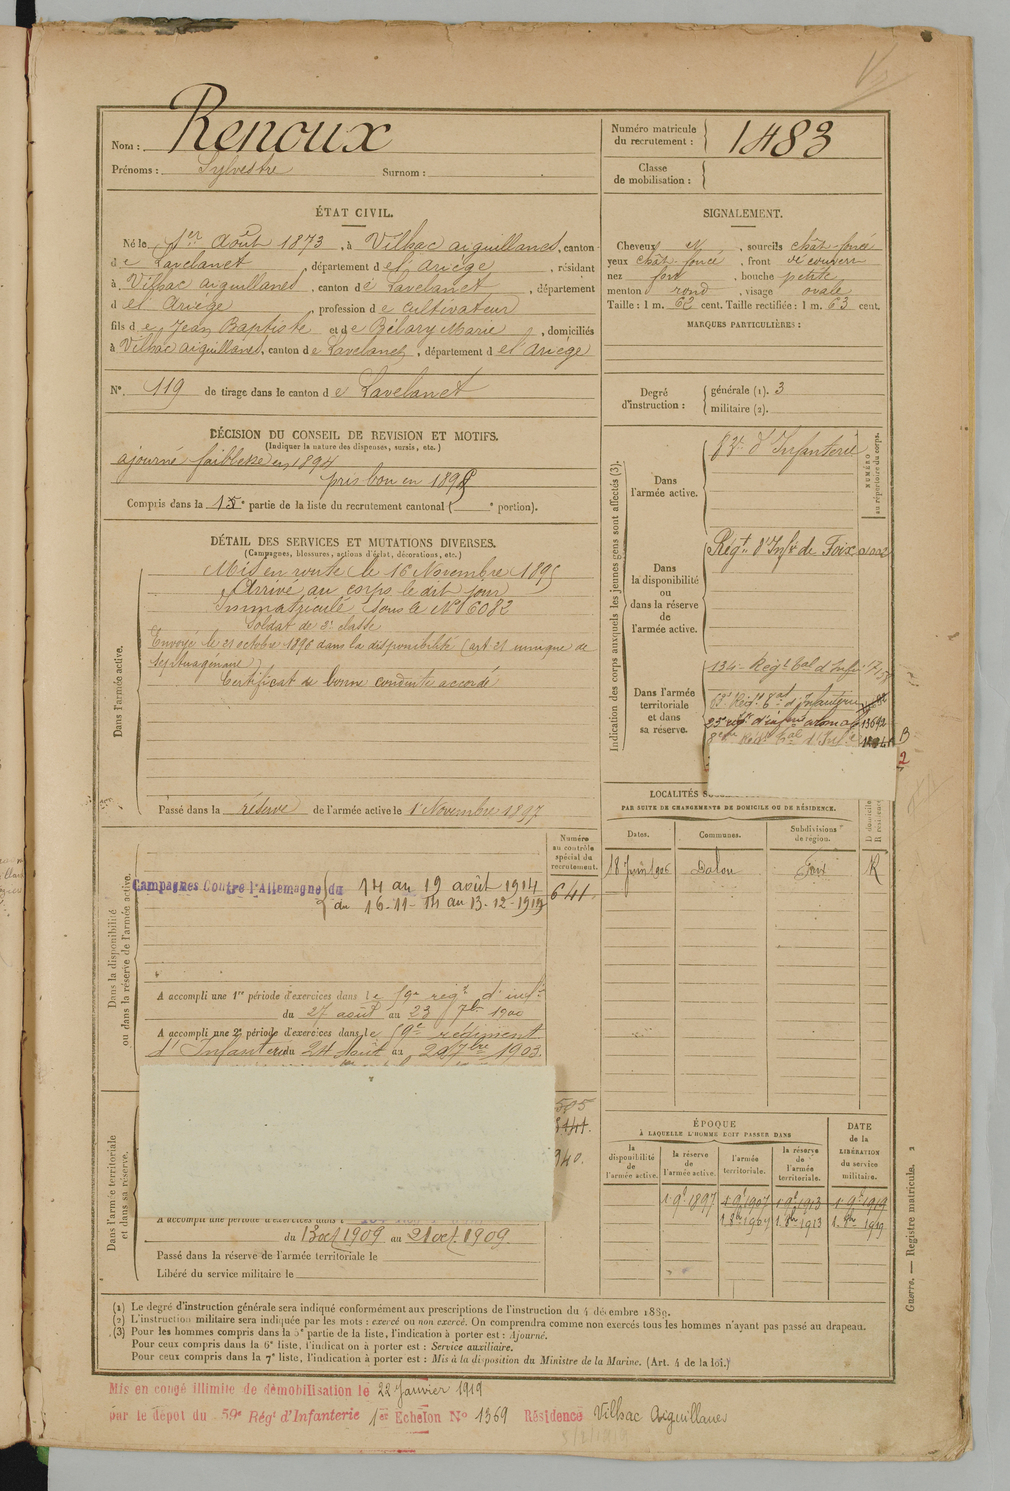 Nom : Renoux
Prénoms : Sylvestre Surnom :
Numéro matricule du recrutement : 1483
Classe de mobilisation :
ÉTAT CIVIL.
Né le 1er Août 1873, à Vilhac aiguillanes, canton
de Lavelanet, département de l'Ariège, résidant
à Vilhac aiguillanes, canton de Lavelanet, département
d el Ariège, profession de cultivateur
fils de Jean Baptiste et de Marie, domiciliés
à Vilhac aiguillanes, canton de Lavelanet, département d el'Ariège
N° 119 de tirage dans le canton de Lavelanet
SIGNALEMENT.
Cheveux N, sourcils chât-foncé
yeux chât-foncé, front découvert
nez fort, bouche petite
menton rond, visage ovale
Taille : 1 m. 62 cent. Taille rectifiée : 1 m. 63 cent.
MARQUES PARTICULIÈRES :
Degré d'instruction : générale (1). 3
militaire (2).
DÉCISION DU CONSEIL DE REVISION ET MOTIFS.
(Indiquer la nature des dispenses, sursis, etc.)
ajourné faiblesse en 1894
pris bon en 1895
Compris dans la 1e partie de la liste du recrutement cantonal ( e portion).
DÉTAIL DES SERVICES ET MUTATIONS DIVERSES.
(Campagnes, blessures, actions d'éclat, décorations, etc.)
Dans l'armée active.
Mis en route le 16 Novembre 1895
Arrivé au corps le dit jour
Immatriculé sous le N° 6082
Soldat de 2e classe
Envoyé le 21 octobre 1896 dans la disponibilité (art 21 unique de
septuagénaire)
Certificat de bonne conduite accordé
Passé dans la réserve de l'armée active le 1 Novembre 1897
Indication des corps auxquels les jeunes gens sont affectés (3).
NUMÉRO au répertoire du corps.
Dans l'armée active.
d'Infanterie
Dans la disponibilité ou dans la réserve de l'armée active.
Régt d'Infie de Foix
Dans l'armée territoriale et dans sa réserve.
134e Régt tal d'Infie
LOCALITÉS
PAR SUITE DE CHANGEMENTS DE DOMICILE OU DE RÉSIDENCE.
Dates. Communes. Subdivisions de région.
18 1906 Dalou Foix R
Numéro au contrôle spécial du recrutement.
641
Dans la disponibilité ou dans la réserve de l'armée active.
Campagnes Contre l'Allemagne du 14 au 19 août 1914
du 16-11-14 au 13-12-1919
A accompli une 1re période d'exercices dans le 59e régt d'infie
du 27 août au 23 7bre 1900
A accompli une 2e période d'exercices dans le 59e régiment
d'Infanterie du 24 Août au 20 7bre 1903.
Dans l'armée territoriale et dans sa réserve.
505
A accompli une période d'exercices dans l
du 13 oct 1909 au 21 oct. 1909.
Passé dans la réserve de l'armée territoriale le
Libéré du service militaire le
ÉPOQUE
À LAQUELLE L'HOMME DOIT PASSER DANS
la disponibilité de l'armée active. la réserve de l'armée active. l'armée territoriale. la réserve de l'armée territoriale.
DATE de la LIBÉRATION du service militaire.
1 9e 1897 1 9e 1907 1 9e 1913 1 9e 1919
1 8bre 1907 1 8bre 1913 1 8bre 1919
(1) Le degré d'instruction générale sera indiqué conformément aux prescriptions de l'instruction du 4 décembre 1889.
(2) L'instruction militaire sera indiquée par les mots : exercé ou non exercé. On comprendra comme non exercés tous les hommes n'ayant pas passé au drapeau.
(3) Pour les hommes compris dans la 5e partie de la liste, l'indication à porter est : Ajourné.
Pour ceux compris dans la 6e liste, l'indication à porter est : Service auxiliaire.
Pour ceux compris dans la 7e liste, l'indication à porter est : Mis à la disposition du Ministre de la Marine. (Art. 4 de la loi.)
Guerre. — Registre matricule. 2
Mis en congé illimité de démobilisation le 22 Janvier 1919
par le dépot du 59e Régt d'Infanterie 1er Echelon N° 1369 Résidence Vilhac Aiguillanes